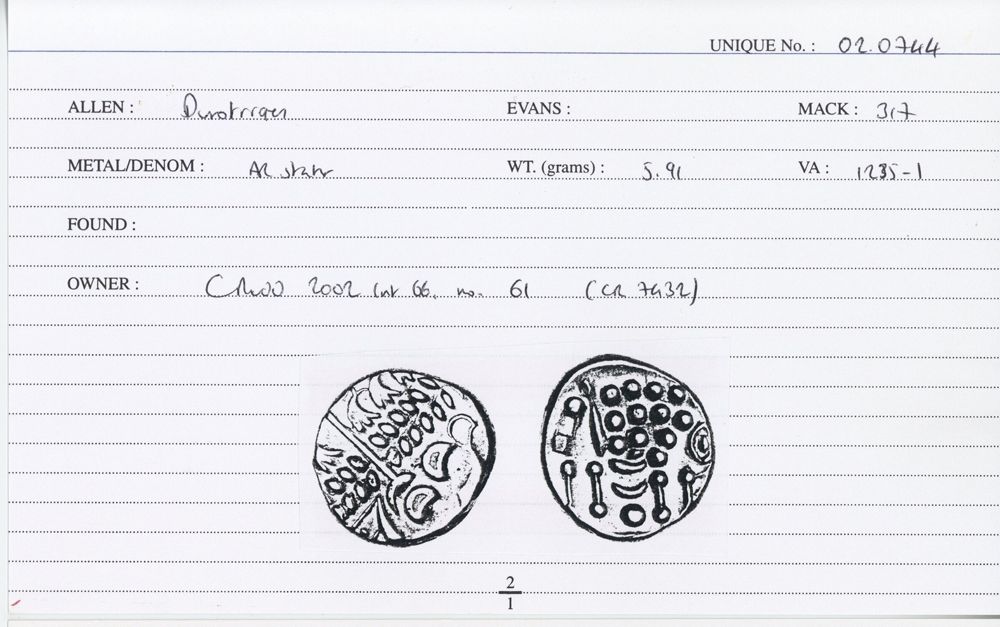 UNIQUE No. : 02.0744
ALLEN : Durotriges EVANS : MACK : 317
METAL/DENOM : AR stater WT. (grams) : 5.91 VA : 1235-1
FOUND :
OWNER : 2002 66, no. 61 (CR 7432)
2
1